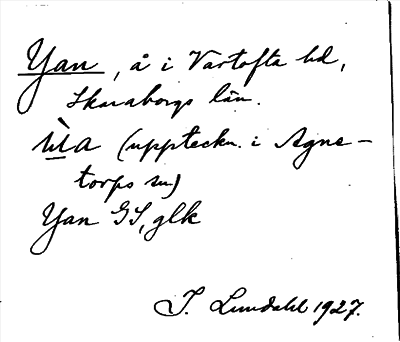 Yan, å i Vartofta hd,
Skaraborgs län.
(uppteckn. i Agne-
torps sn)
Yan GS, glk
I. Lundahl 1927.